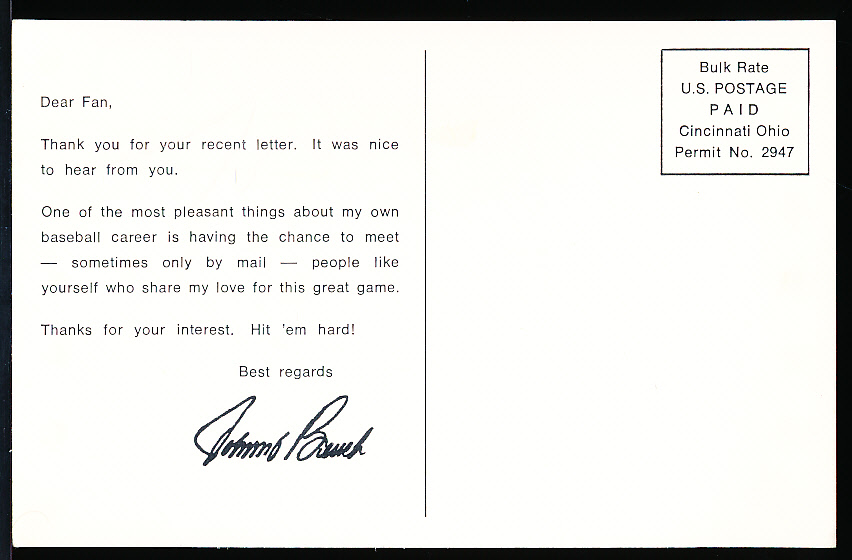 Dear Fan,
Thank you for your recent letter. It was nice
to hear from you.
One of the most pleasant things about my own
baseball career is having the chance to meet
— sometimes only by mail — people like
yourself who share my love for this great game.
Thanks for your interest. Hit 'em hard!
Best regards
Johnny Bench
Bulk Rate
U.S. POSTAGE
PAID
Cincinnati Ohio
Permit No. 2947